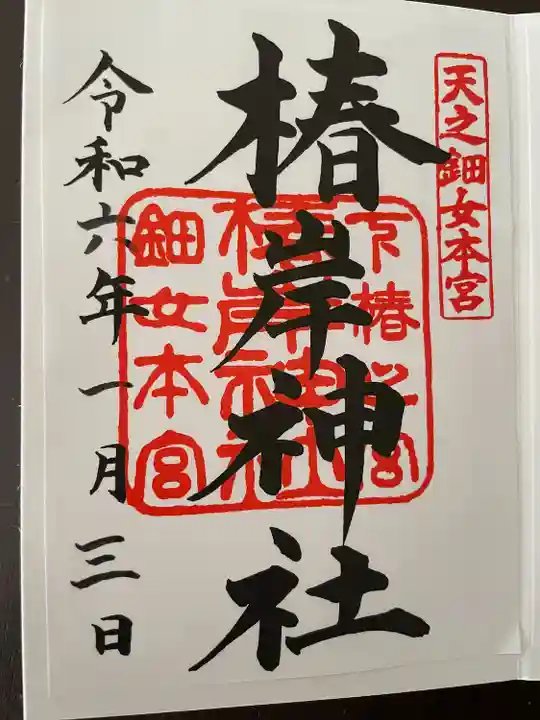 天之鈿女本宮
椿岸神社
下椿
宮
椿岸神社
鈿女本宮
令和六年一月三日